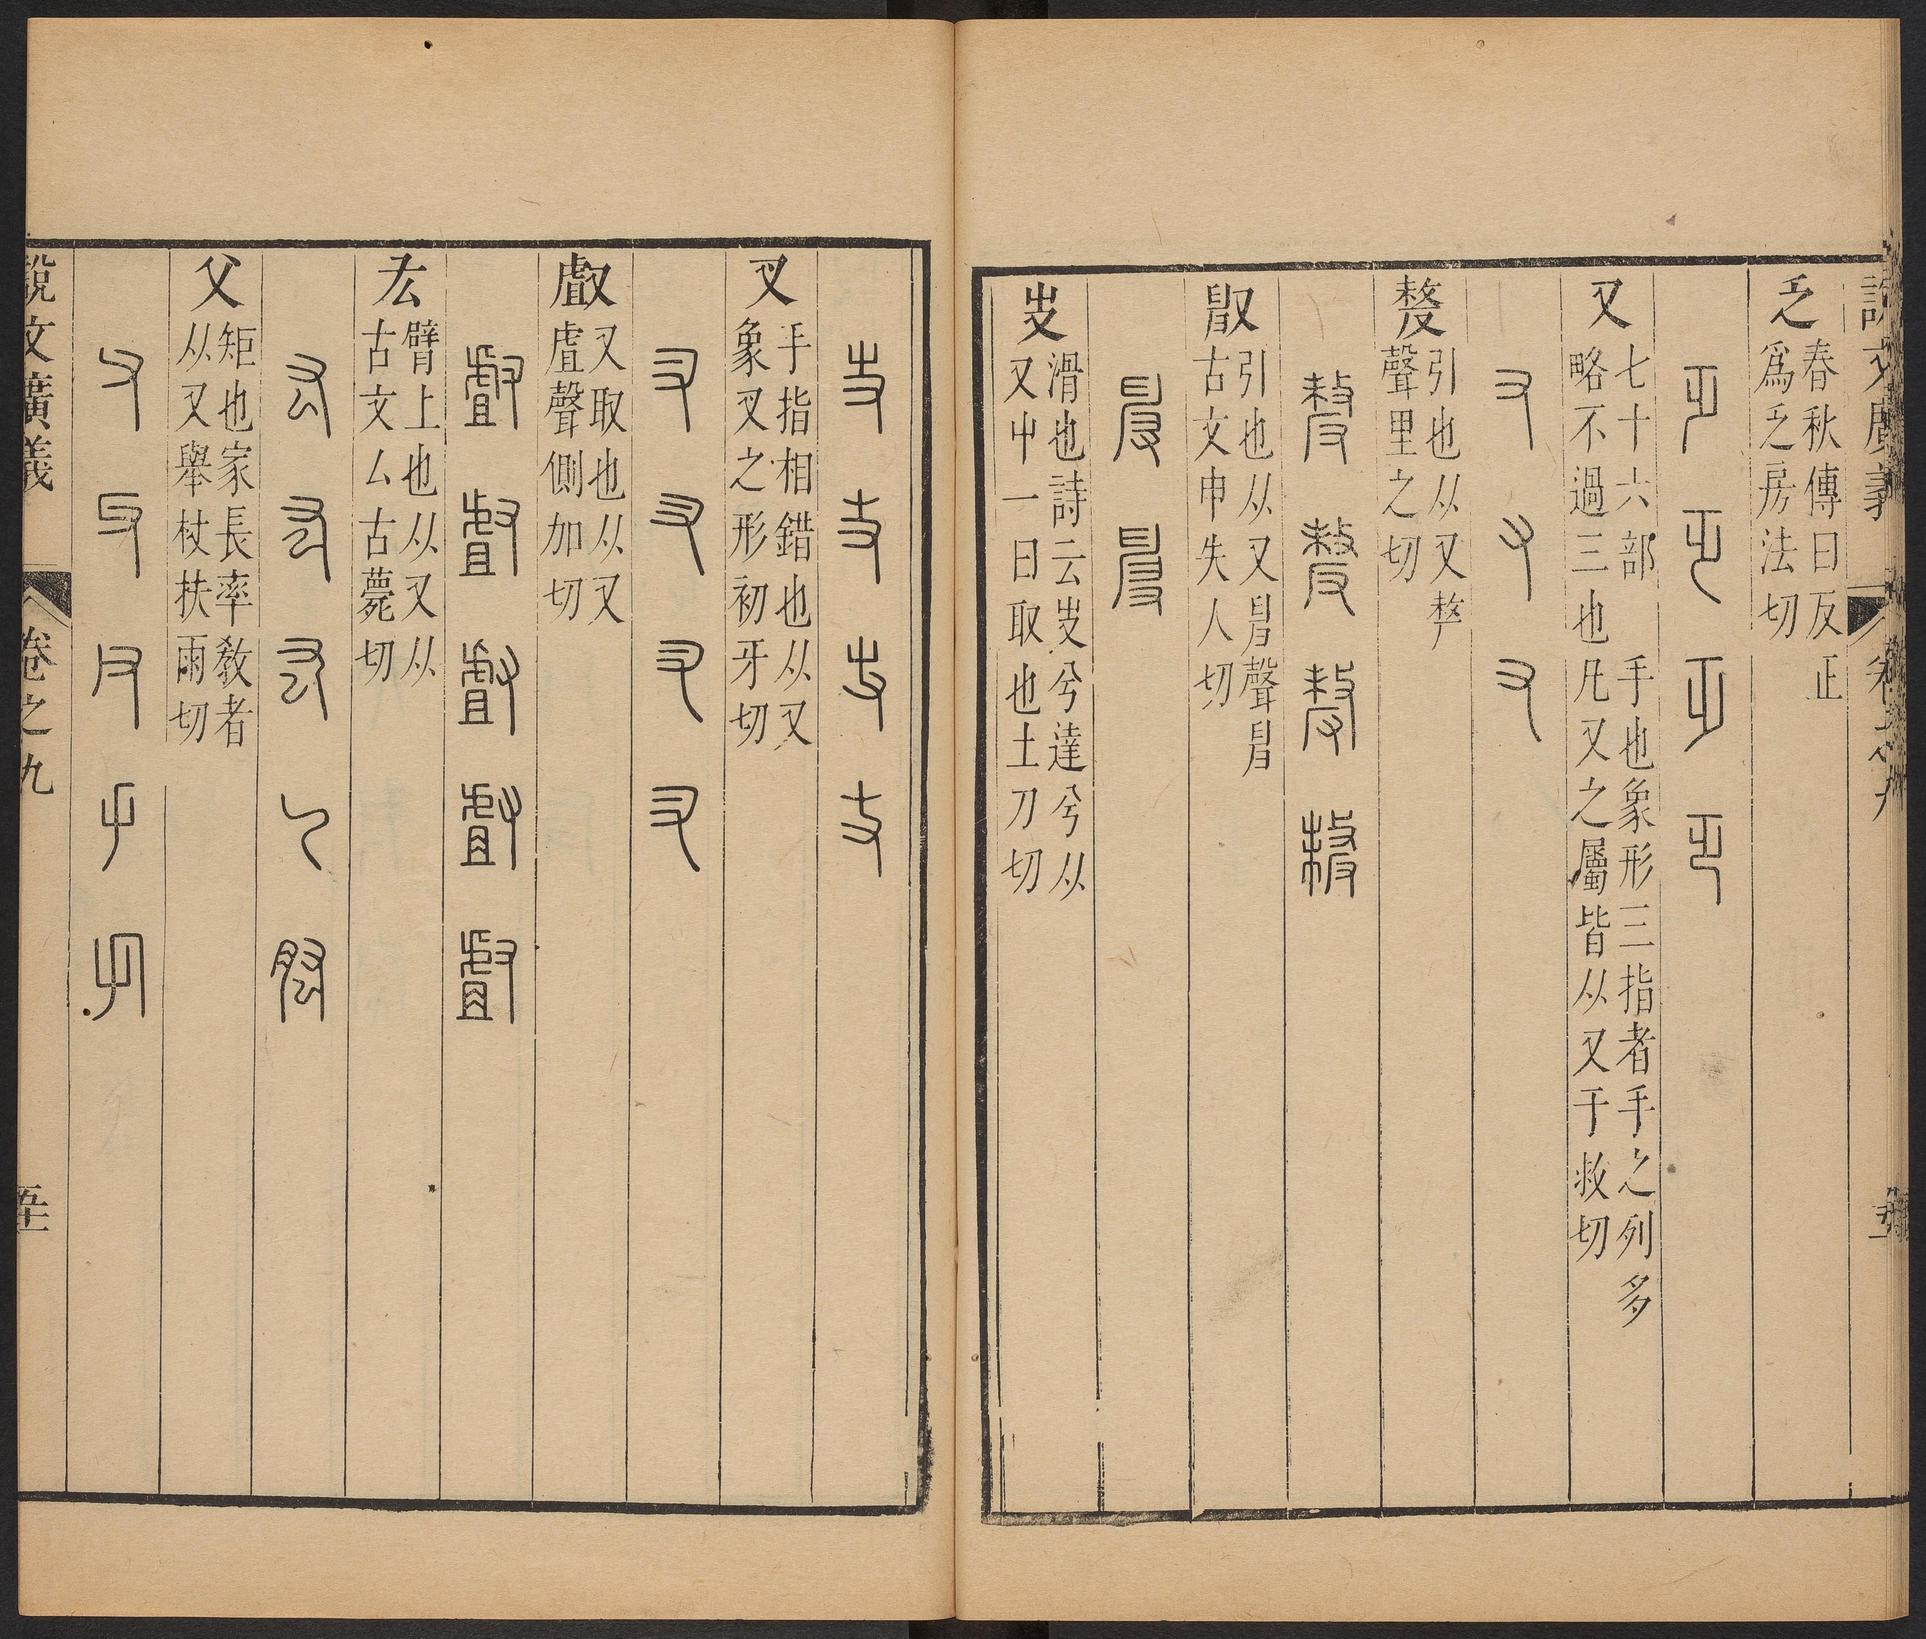 說文廣義 卷之九
乏 春秋傳曰反正
爲乏房法切
又 七十六部 手也象形三指者手之列多
略不過三也凡又之屬皆从又于救切
𠭰 引也从又𠩺
聲里之切
𠭙 引也从又𦥔聲𦥔
古文申失人切
𠬢 滑也詩云𠬢兮達兮从
又屮一曰取也土刀切
叉 手指相錯也从又
象叉之形初牙切
𠭯 又取也从又
虘聲側加切
厷 臂上也从又从
古文厶古薨切
父 矩也家長率教者
从又舉杖扶雨切
說文廣義 卷之九